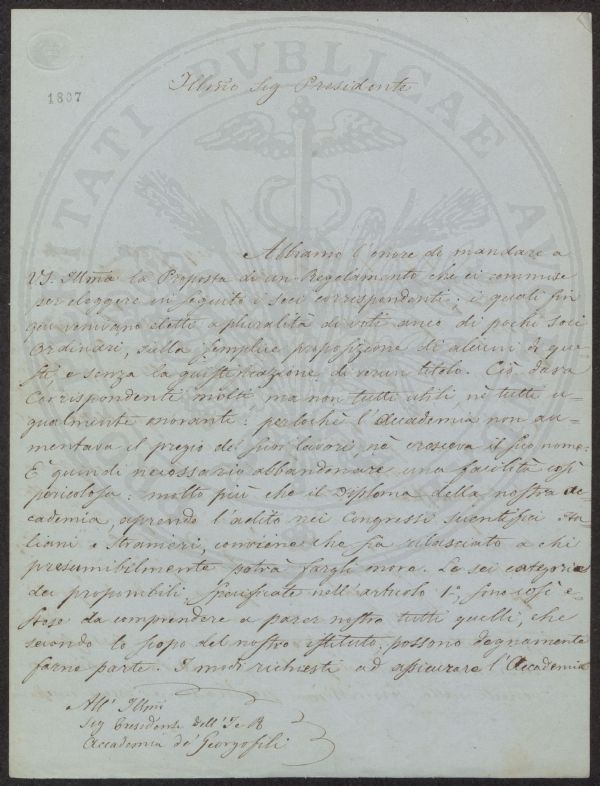 1807
Illmo Sig Presidente
Abbiamo l'onore di mandare a
VS. Illma la Proposta di un Regolamento che ci commise
per eleggere in seguito i soci corrispondenti: i quali fin
qui venivano eletti a pluralità di voti anco di pochi soci
Ordinari, sulla semplice proposizione di alcuni di que=
sti, e senza la giustificazione di verun titolo. Ciò dava
Corrispondenti molti ma non tutti utili, nè tutti u=
gualmente onoranti: perlochè l'Accademia non au=
mentava il pregio de' suoi lavori nè cresceva il suo nome.
È quindi necessario abbandonare una facilità così
pericolosa: molto più che il Diploma della nostra Ac=
cademia, aprendo l'adito nei Congressi scientifici Ita=
liani e stranieri, conviene che sia rilasciato a chi
presumibilmente potrà fargli onore. Le sei categorie
dei proponibili specificate nell'articolo 1°, sono così e=
stese da comprendere a parer nostro tutti quelli, che
secondo lo scopo del nostro istituto, possono degnamente
farne parte. I modi richiesti ad assicurare l'Accademia
All' Illmo
Sig Presidente dell' I e R
Accademia de' Georgofili
PVBLICAE